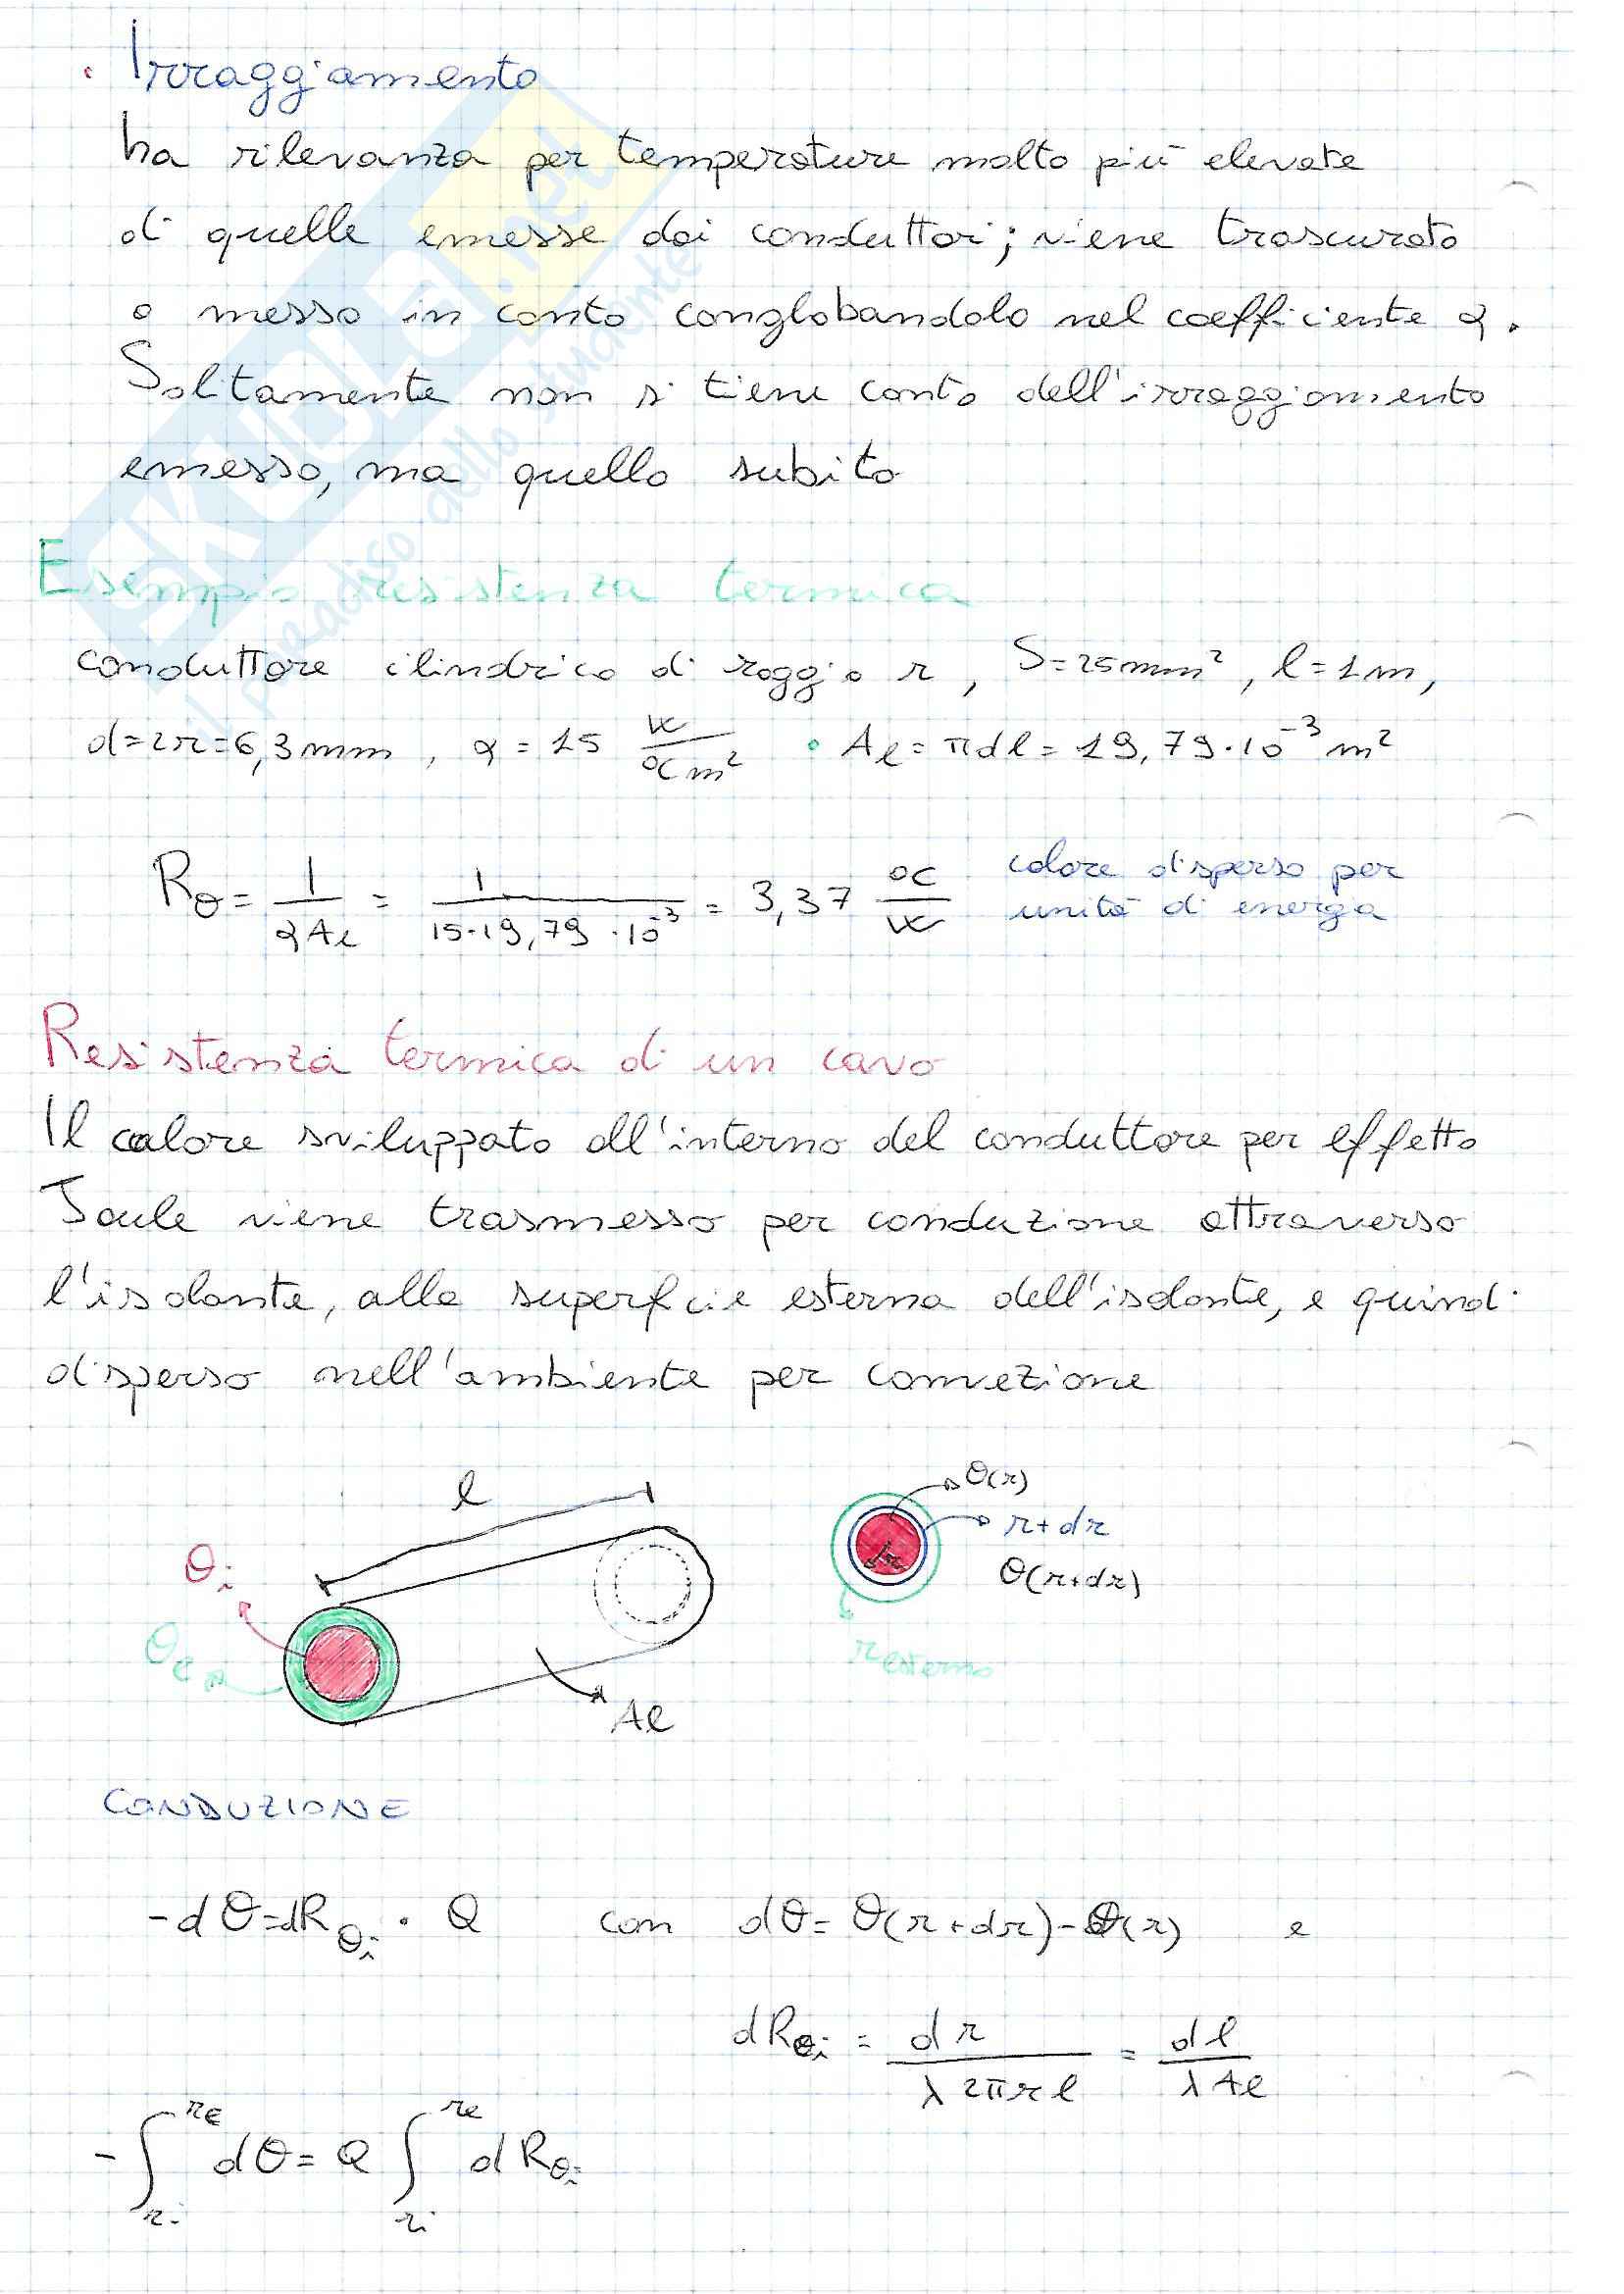 · Irraggiamento
ha rilevanza per temperature molto più elevate
di quelle emesse dai conduttori; viene trascurato
o messo in conto conglobandolo nel coefficiente α.
Solitamente non si tiene conto dell'irraggiamento
emesso, ma quello subito
Esempio resistenza termica
conduttore cilindrico di raggio r, S=25mm², l=1m,
d=2r=6,3mm, α=15 W/°Cm² • Aℓ=πdl=19,79·10⁻³ m²
Rθ = 1/αAℓ = 1/15·19,79·10⁻³ = 3,37 °C/W calore disperso per
unità di energia
Resistenza termica di un cavo
Il calore sviluppato all'interno del conduttore per effetto
Joule viene trasmesso per conduzione attraverso
l'isolante, alla superficie esterna dell'isolante, e quindi
disperso nell'ambiente per convezione
l
θ(r)
r+dr
θi
dr
θ(r+dr)
θe
r esterno
Aℓ
CONDUZIONE
-dθ=dRθi · Q con dθ= θ(r+dr)-θ(r) e
dRθi = dr/λ2πrl = dl/λAℓ
-∫ri^re dθ= Q ∫ri^re dRθi
SKUOLA.net
il paradiso dello studente